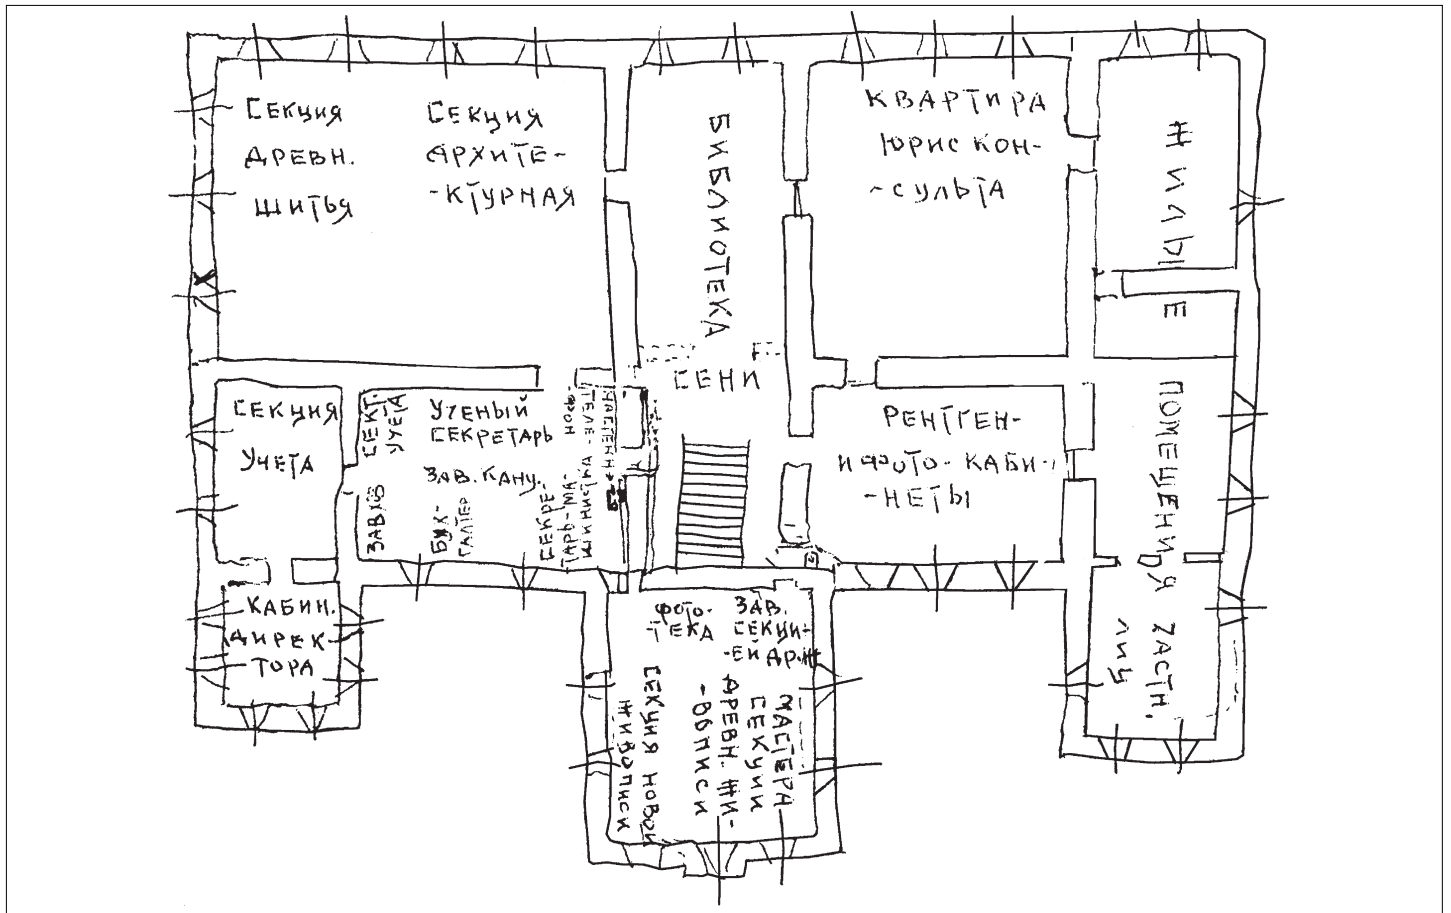 СЕКЦИЯ
ДРЕВН.
ШИТЬЯ
СЕКЦИЯ
АРХИТЕ-
-КТУРНАЯ
БИБЛИОТЕКА
КВАРТИРА
ЮРИСКОН-
-СУЛЬТА
ЖИЛЫЕ
ПОМЕЩЕНИЯ ЧАСТН.
ЛИЦ
СЕНИ
СЕКЦИЯ
УЧЕТА
СЕКТ.
УЧЕТА
УЧЕНЫЙ
СЕКРЕТАРЬ
ЗАВ. КАНЦ.
ЗАВХОЗ
БУХ-
ГАЛТЕР
СЕКРЕ-
ТАРЬ-МА-
ШИНИСТКА
ТЕЛЕ-
ФОН
РЕНТГЕН-
И ФОТО-КАБИ-
-НЕТЫ
КАБИН.
ДИРЕК-
ТОРА
ФОТО-
-ТЕКА
ЗАВ.
СЕКЦИ-
-ЕЙ ДР.Ж
СЕКЦИЯ НОВОЙ
ЖИВОПИСИ
МАСТЕРА
СЕКЦИИ
ДРЕВН. ЖИ-
-ВОПИСИ